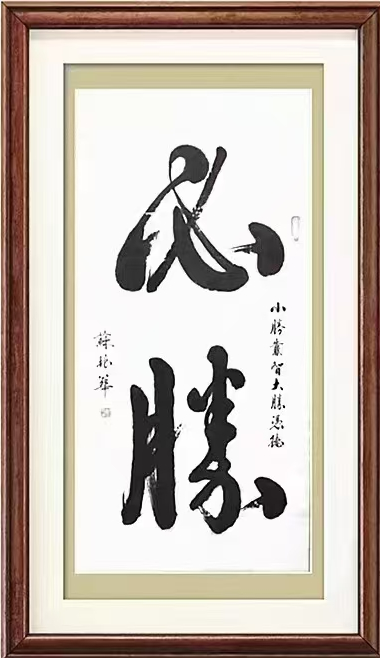 必勝
小勝靠智大勝憑德
蘇振華